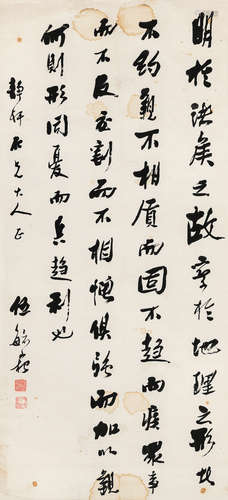 明於諸侯之故察於地理之形者
不約親不相質而固不趨而疾眾事
而不反交割而不相憎俱強而加以親
何則形同憂而兵趨利也
靜軒兄大人正 伍毓崧